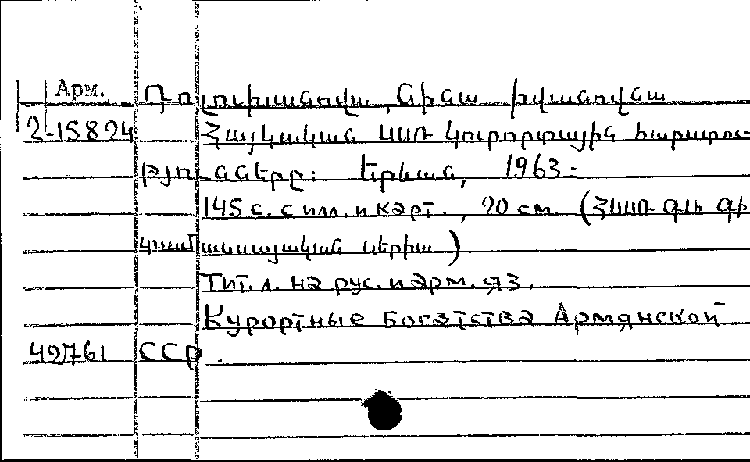 Арм. Դոլուխանովա, Նինա Իվանովնա
2-15824 Հայկական ՍՍՌ կուրորտային հարստու-
թյունները: Երևան, 1963.
145 с. с илл. и карт., 20 см. (ՀՍՍՌ գիտ գի
կան մատչելի սերիա)
Тит. л. на рус. и арм. яз.
Курортные богатства Армянской
49761 ССР.